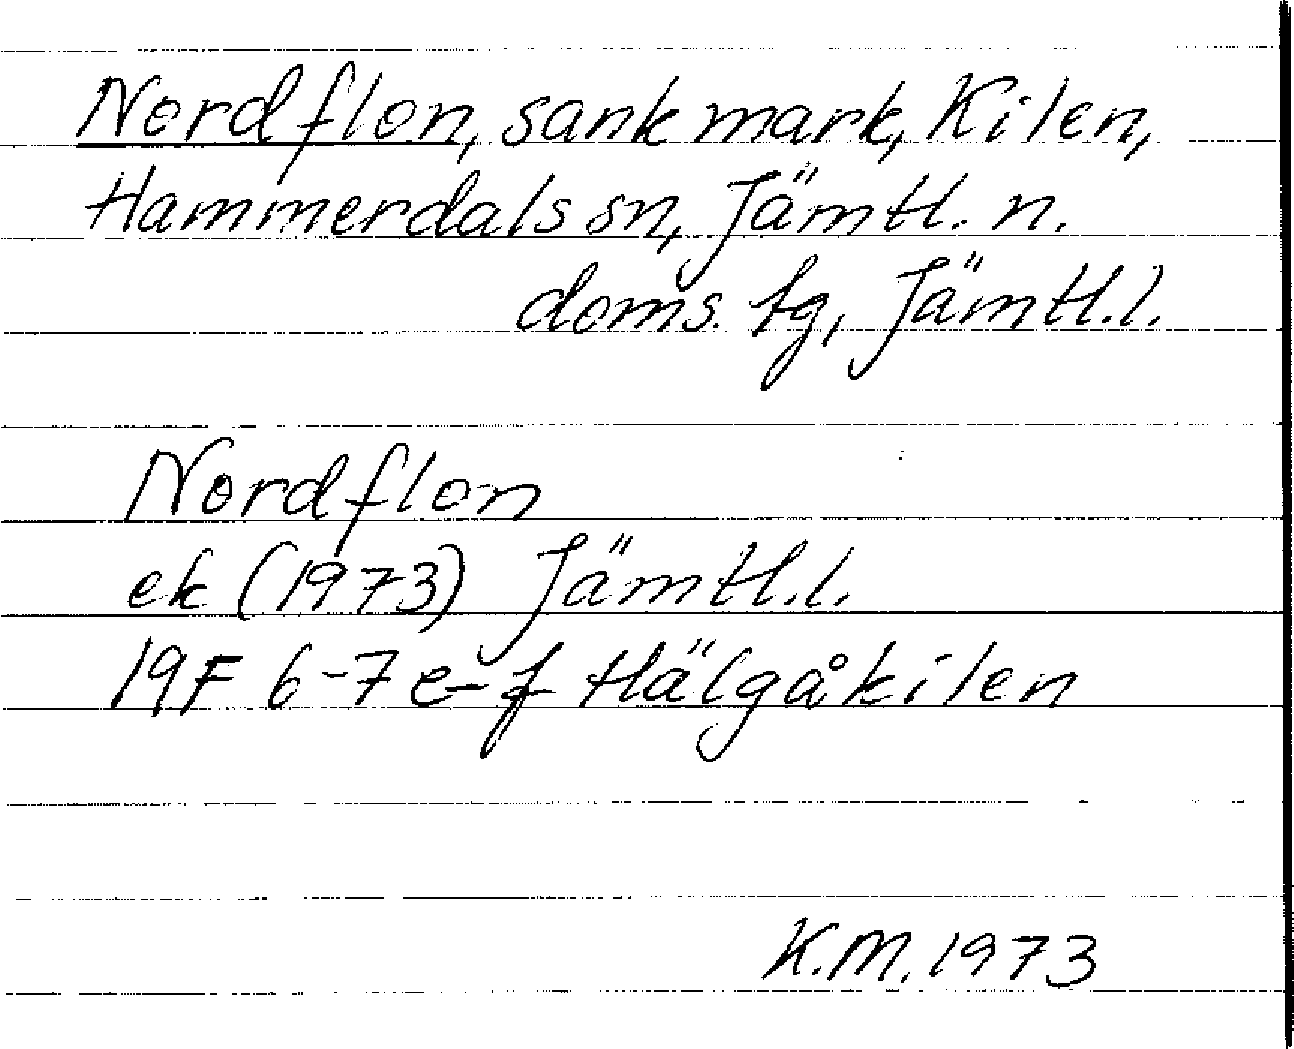 Nordflon, sank mark, Kilen,
Hammerdals sn, Jämtl. n.
doms. fg, Jämtl.l.
Nordflon
ek (1973) Jämtl.l.
19F 6-7 e-f Hälgåkilen
K.M. 1973